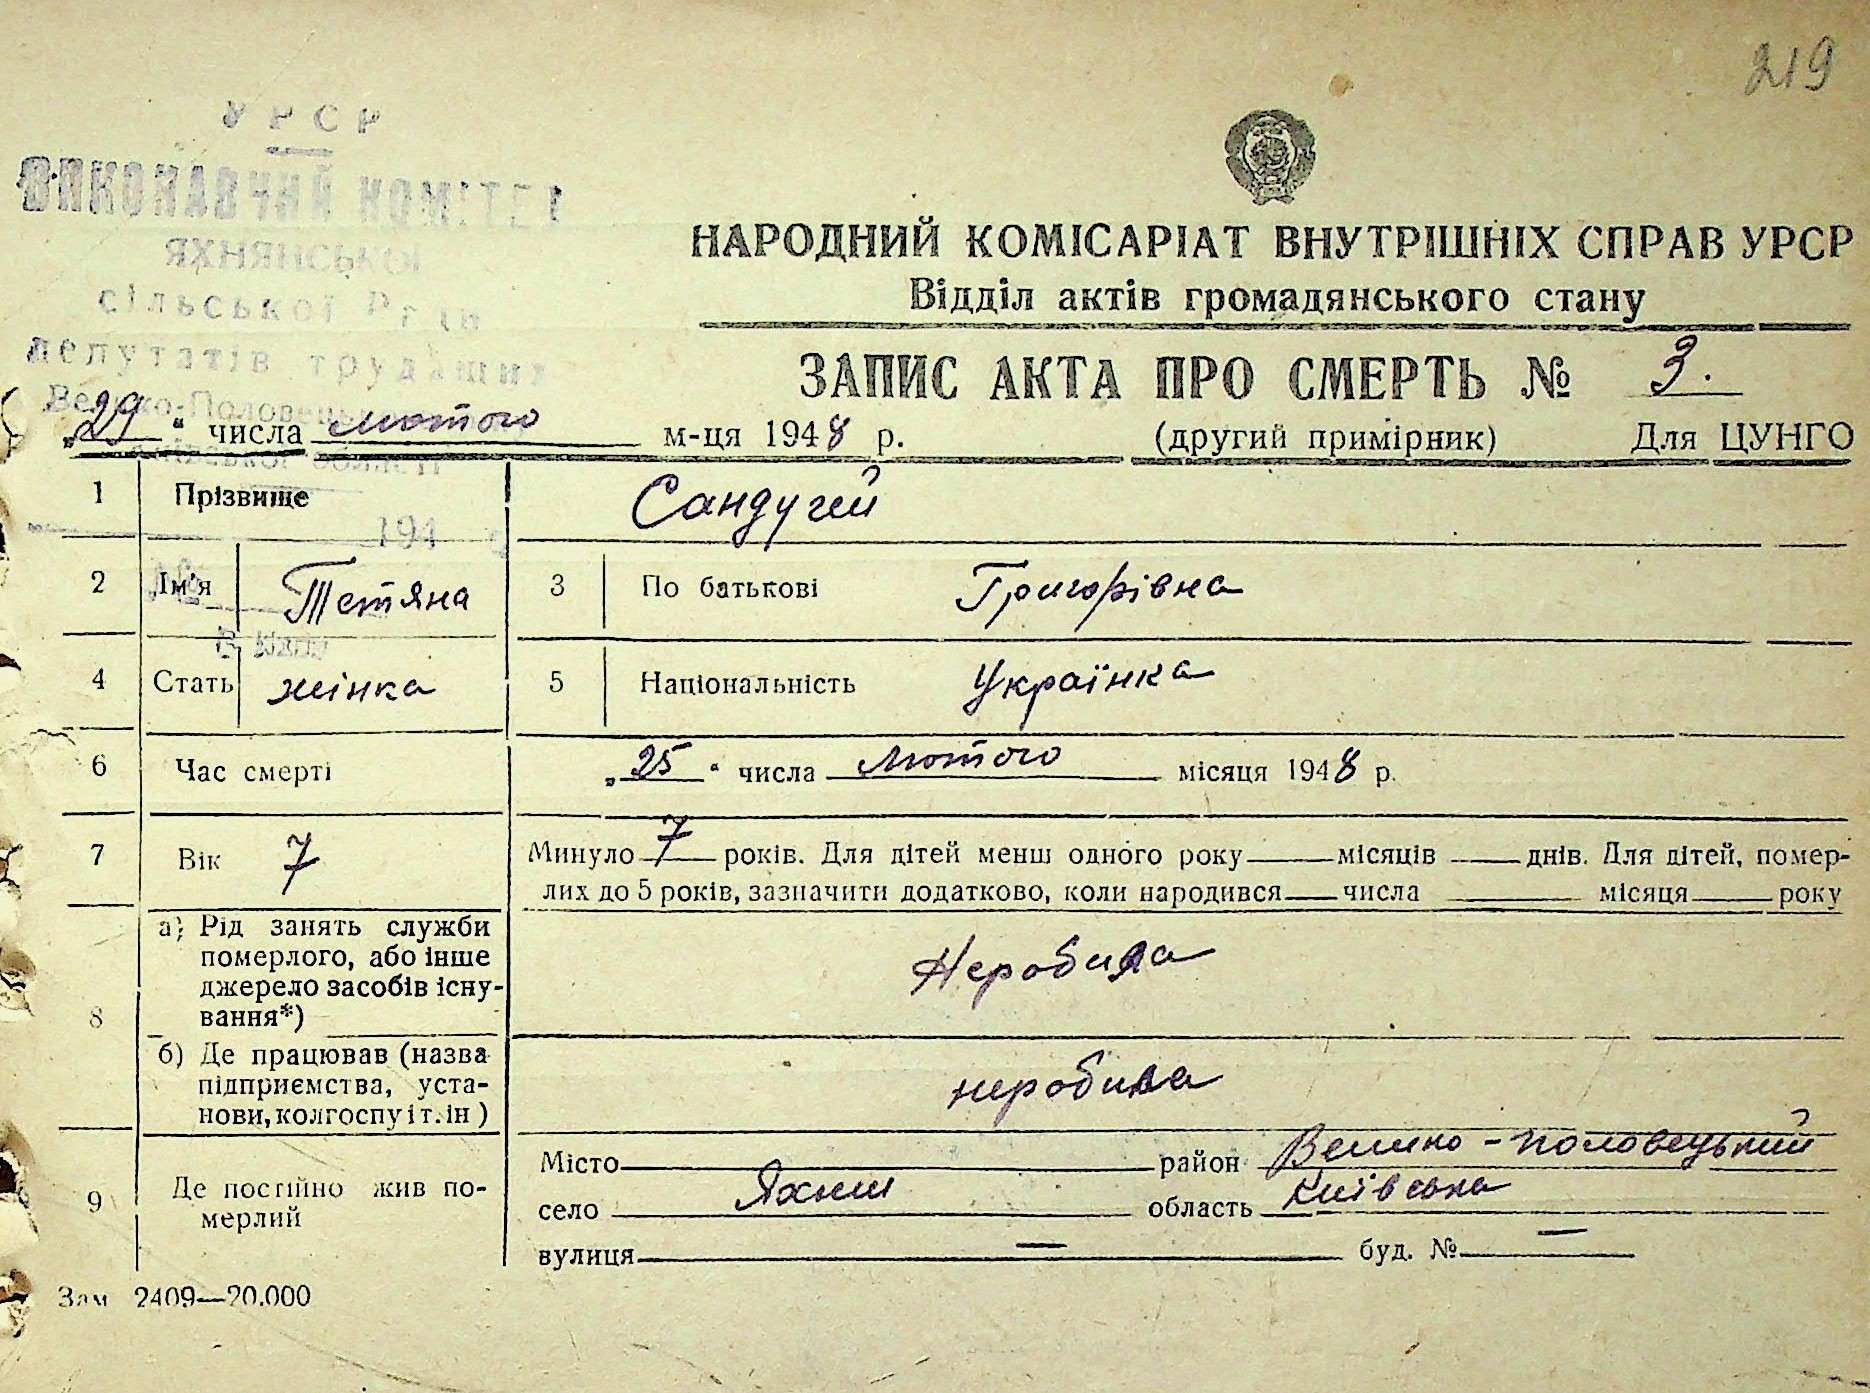 219
УРСР
ВИКОНАВЧИЙ КОМІТЕТ
ЯХНЯНСЬКОЇ
сільської Ради
депутатів трудящих
Велико-Половецьк
Київської області
194
НАРОДНИЙ КОМІСАРІАТ ВНУТРІШНІХ СПРАВ УРСР
Відділ актів громадянського стану
ЗАПИС АКТА ПРО СМЕРТЬ № 3.
„29“ числа лютого м-ця 1948 р. (другий примірник) Для ЦУНГО
1 Прізвище Сандугей
2 Ім'я Тетяна 3 По батькові Григорівна
4 Стать жінка 5 Національність Українка
6 Час смерті „25“ числа Лютого місяця 1948 р.
7 Вік 7 Минуло 7 років. Для дітей менш одного року місяців днів. Для дітей, помер-
лих до 5 років, зазначити додатково, коли народився числа місяця року
8 а) Рід занять служби
померлого, або інше
джерело засобів існу-
вання*) Неробила
б) Де працював (назва
підприємства, уста-
нови, колгоспу і т. ін) неробила
9 Де постійно жив по-
мерлий
Місто район Велико-Половецький
село Яхни область Київська
вулиця — буд. № —
Зам 2409—20.000